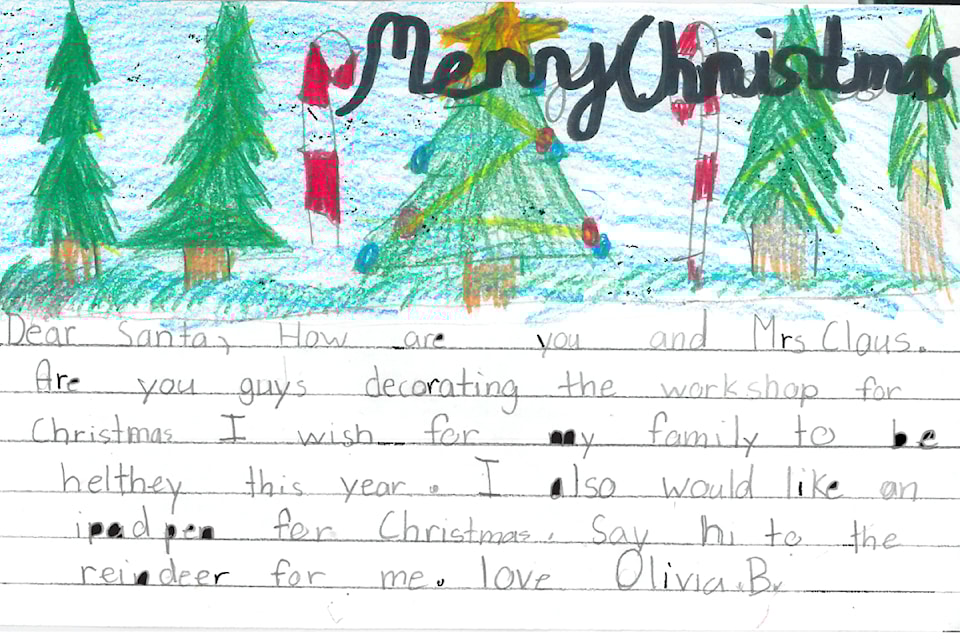 Merry Christmas
Dear Santa, How are you and Mrs Claus.
Are you guys decorating the workshop for
Christmas I wish for my family to be
helthey this year. I also would like an
ipad pen for Christmas. Say hi to the
reindeer for me. love Olivia.B.